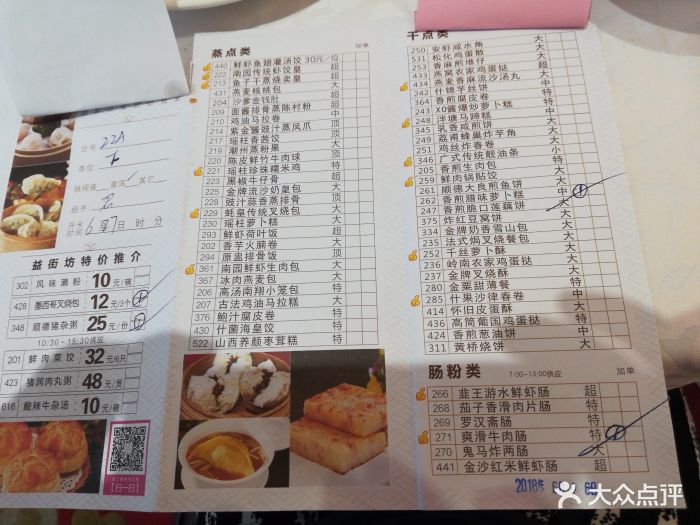 台号 22A
茶位
铁观音 普洱 其它
经手
开卡时间 6月7日 时 分
益街坊特价推介
302 风味濑粉 10元/碗
428 墨西哥叉烧包 12元/3个
348 顺德猪杂粥 25元/份
10:30-15:30供应
201 鲜肉菜饺 32元/6只
423 猪润肉丸粥 48元/煲
616 酸辣牛杂汤 10元/碗
蒸点类 加单
440 鲜虾鱼翅灌汤饺 30元/位
222 南园传统虾饺皇 超
213 鱼子干蒸烧卖皇 超
431 燕麦核桃包 大
204 沙爹金钱肚 超
209 面酱排骨蒸陈村粉 超
210 鸡油马拉卷 中
214 紫金酱豉汁蒸凤爪 顶
217 瑶柱香茜饺 大
219 潮州蒸粉果 大
220 陈皮鲜竹牛肉球 顶
221 瑶柱珍珠糯米鸡 特
223 黑椒牛仔骨 超
225 金牌流沙奶皇包 大
228 豉汁蒜香蒸排骨 特
229 蚝皇传统叉烧包 大
230 瑶柱萝卜糕 大
293 鲜虾荷叶饭 超
202 香芋火腩卷 顶
294 原盅排骨饭 超
361 南园鲜虾生肉包 大
367 冰肉燕麦包 大
206 高汤南翔小笼包 特
207 古法鸡油马拉糕 大
376 鲍汁腐皮卷 特
430 什菌海皇饺 特
522 山西养颜枣茸糕 特
干点类 加单
250 安虾咸水角 大
531 松化鸡蛋散 大
233 香麻煎堆仔 大
433 燕窝农家鸡蛋挞 超
434 燕麦香麻流沙汤丸 大
242 什锦芋丝饼 中
364 香煎腐皮卷 特
243 XO酱爆炒萝卜糕 中
248 泮塘马蹄糕 大
345 乳香咸煎饼 大
249 荔甫蜂巢炸芋角 大
251 鸡丝炸春卷 大
346 广式传统靓油条 小
255 香煎生肉包 特
259 鲜肉锅贴饺 大
261 顺德大良煎鱼饼 大
262 香煎腊味萝卜糕 中
247 香煎脆口莲藕饼 大
375 炸红豆窝饼 大
234 金牌奶香雪山包 大
235 法式焗叉烧餐包 大
252 千丝萝卜酥 大
236 岭南农家鸡蛋挞 大
237 金牌叉烧酥 大
260 金粟甜薄餐 特
285 什果沙律春卷 大
414 怀旧皮蛋酥 大
436 高筒葡国鸡蛋挞 特
435 香煎葱油饼 特
311 黄桥烧饼 大
肠粉类 7:00-13:00供应 加单
266 韭王游水鲜虾肠 超
268 茄子香滑肉片肠 特
269 罗汉斋肠 特
271 爽滑牛肉肠 特
270 鬼马炸两肠 大
441 金沙红米鲜虾肠 超
2018年 6
大众点评